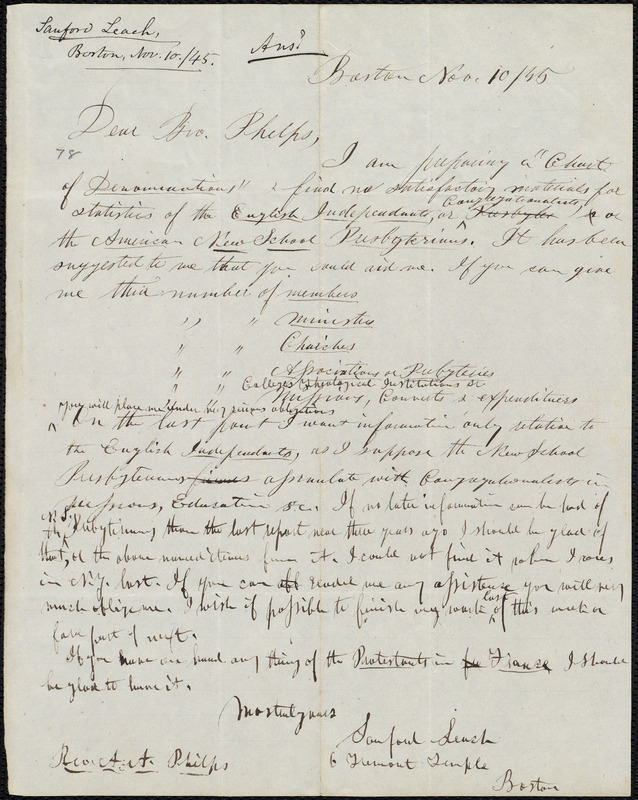 Sanford Leach,
Boston, Nov. 10./45.
Ans.d
Boston Nov. 10/45
Dear Bro. Phelps,
78
I am preparing a "Chart
of Denominations" & find no satisfactory materials for
Congregationalists,
statistics of the English Independants, or Presbyter or
the American New School Presbyterians. It has been
suggested to me that you could aid me. If you can give
me the number of members
" " Ministers
" " Churches
" " Associations or Presbyteries
Colleges Theological Institutions &c
" " Missions, Converts & expenditures
you will place me under very obligations
On the last point I want information only relative to
the English Independants, as I suppose the New School
Presbyterians assimulate with Congregationalists in
missions, Education &c. If no later information can be had of
the N.S. Presbyterians than the last report near three years ago I should be glad of
that, or the above named items from it. I could not find it when I was
in N.Y. last. If you can render me any assistance you will very
much oblige me. I wish if possible to finish my work last of this week or
fore part of next.
If you have on hand any thing of the Protestants in France I should
be glad to have it.
Most truly yours
Sanford Leach
6 Tremont Temple
Boston
Rev. A. A. Phelps